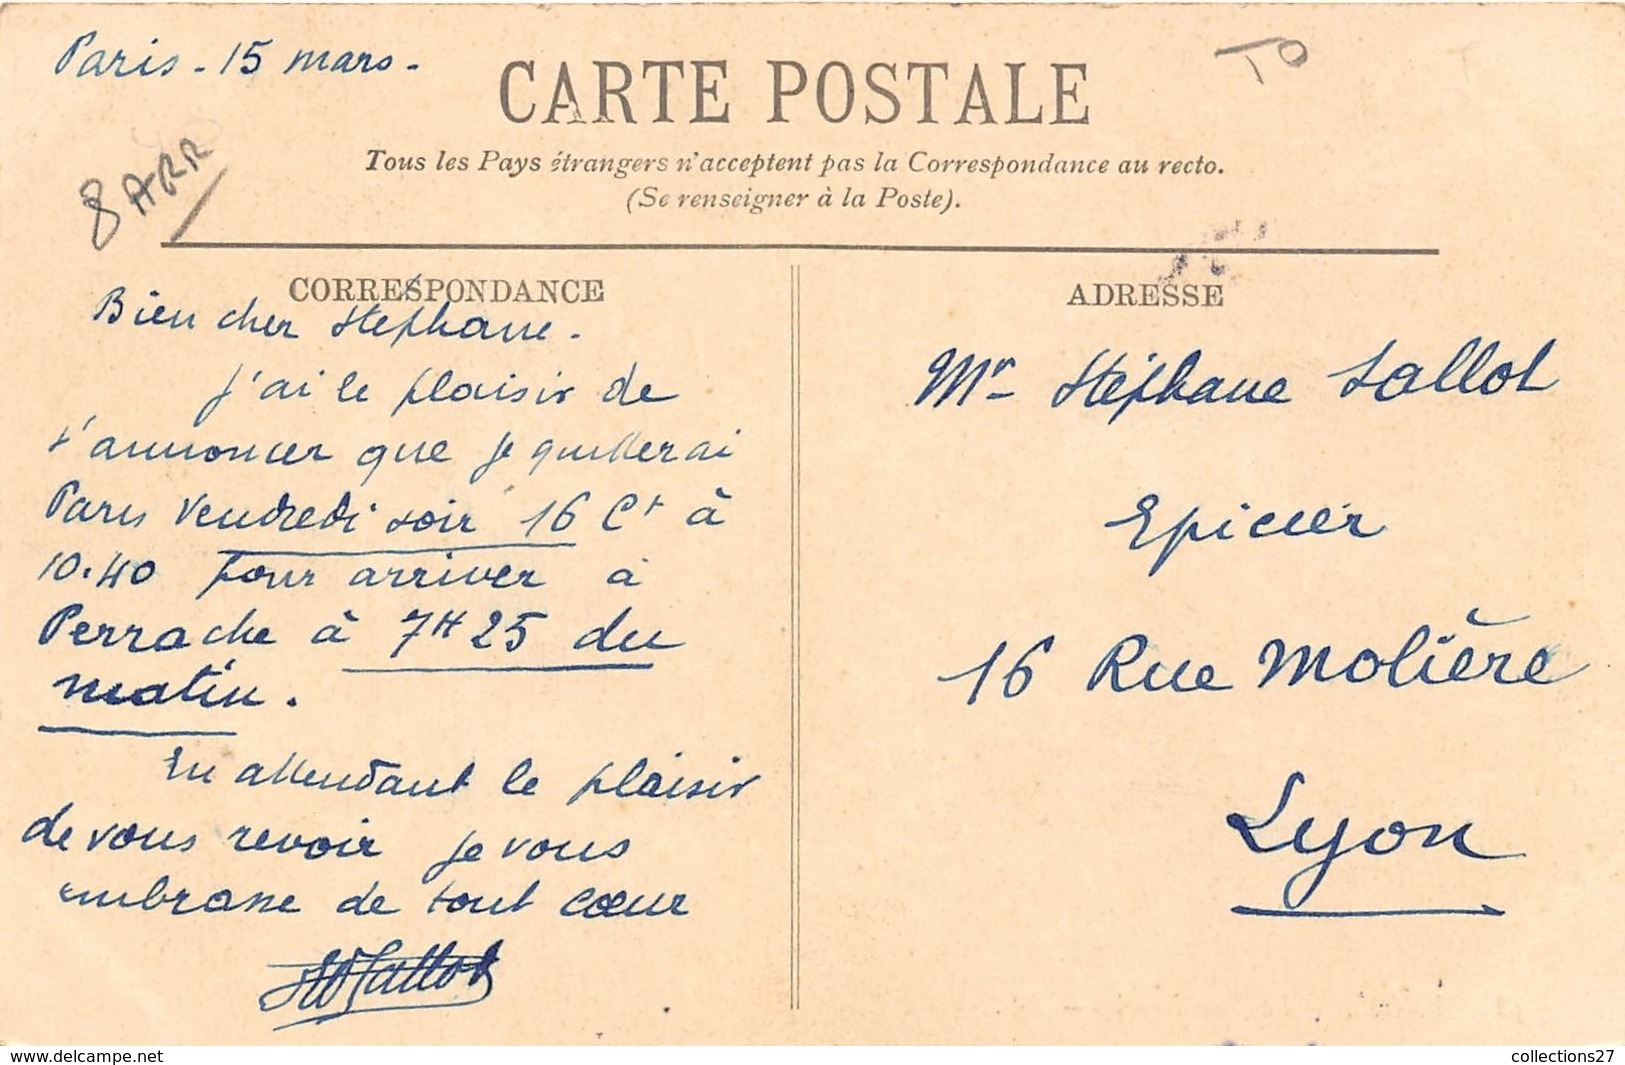 Paris - 15 mars -
TO
CARTE POSTALE
8 ARR
Tous les Pays étrangers n'acceptent pas la Correspondance au recto.
(Se renseigner à la Poste).
CORRESPONDANCE
Bien cher Stephane.
J'ai le plaisir de
t'annoncer que je quitterai
Paris vendredi soir 16 Ct à
10.40 pour arriver à
Perrache à 7H25 du
matin.
En attendant le plaisir
de vous revoir je vous
embrasse de tout cœur
Sallot
ADRESSE
Mr Stéphane Sallot
Epicier
16 Rue Molière
Lyon
www.delcampe.net
collections27